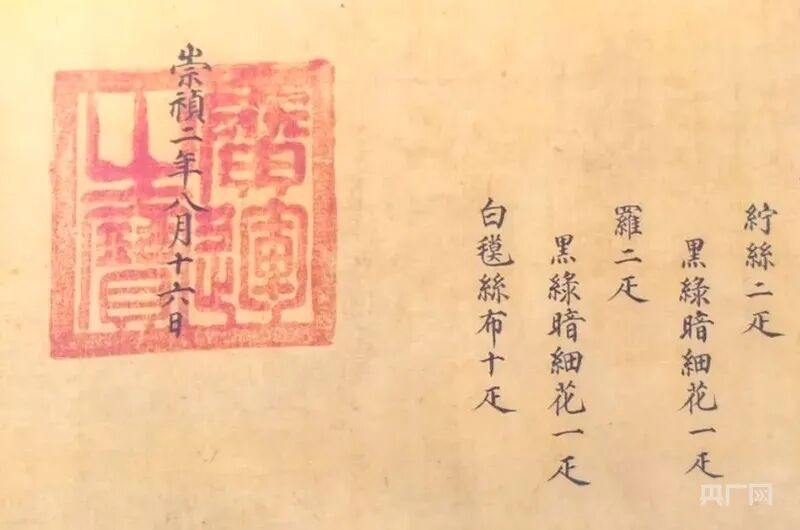 紵絲二疋
黑綠暗細花一疋
羅二疋
黑綠暗細花一疋
白氁絲布十疋
崇禎二年八月十六日
廣運之寶
央广网